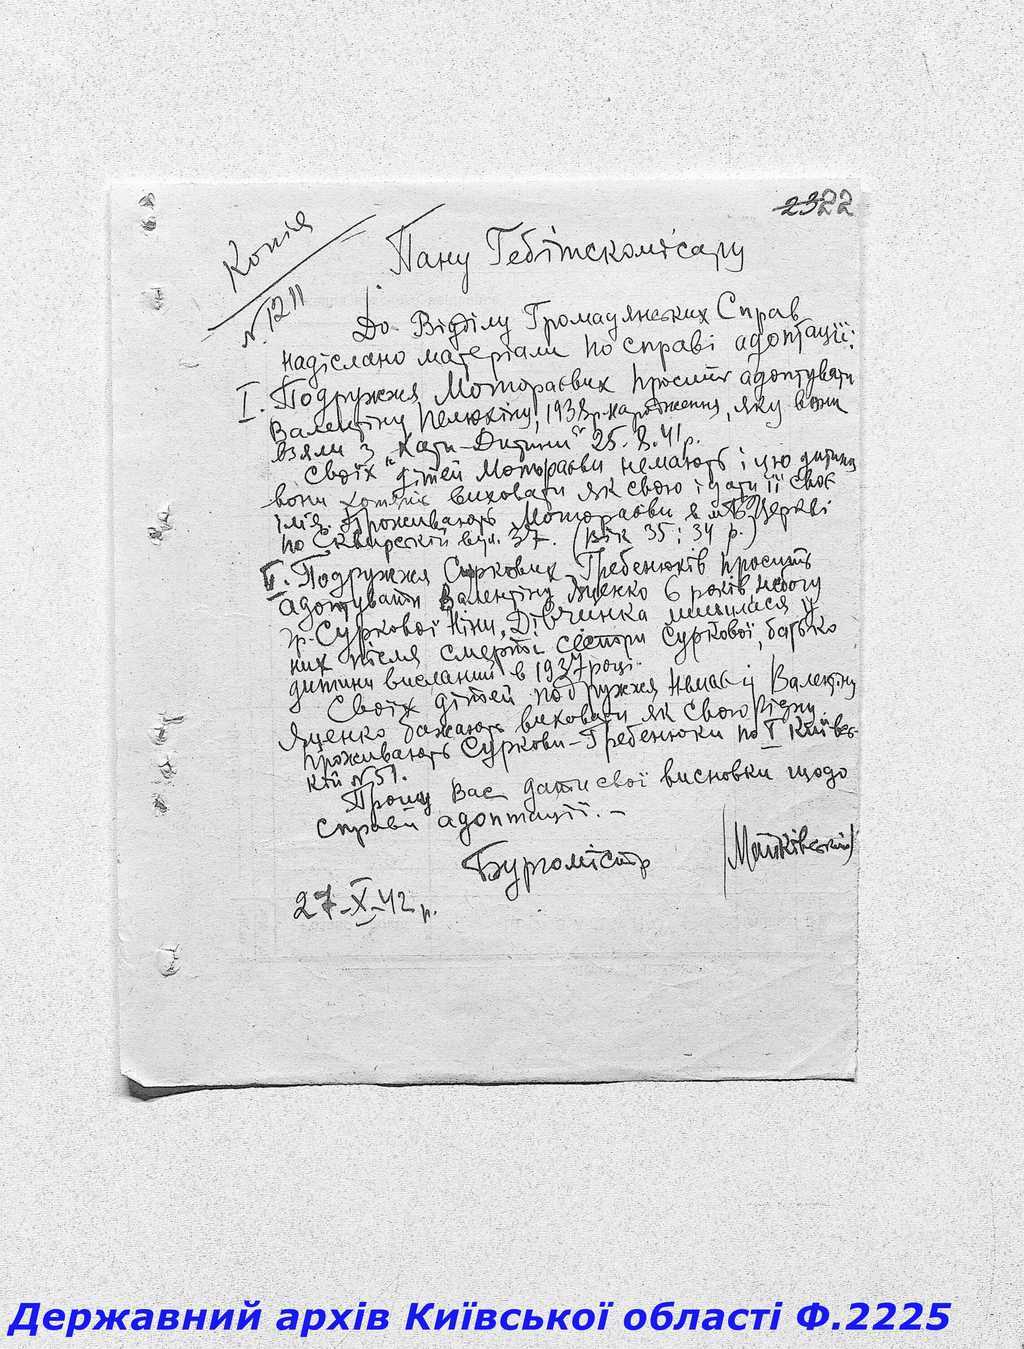 2322
Копія
N. 1211
Пану Гебітскомісару
До Відділу Громадянських Справ
надіслано матеріали по справі адоптації:
I. Подружжя Мотораєвих просить адоптувати
Валентину 1938 р. народження, яку вони
взяли з „Хати-Дитини" 25.8.41 р.
Своїх дітей Мотораєви немають і цю дитину
вони хотять виховати як свою і дати її своє
ім'я. Проживають Мотораєви в м. Б. Церкві
по Сквирській вул. 37. (Вік 35 і 34 р.)
II. Подружжя Суркових Гребенюків просить
адоптувати Валентину Яценко 6 років небогу
гр. Суркової Ніни, Дівчинка лишилася у
них після смерті сестри Суркової, батько
дитини висланий в 1937 році.
Своїх дітей подружжя немає й Валентину
Яценко бажають виховати як свою рідну.
Проживають Суркови-Гребенюки по I Київсь-
кій N 51.
Прошу Вас дати свої висновки щодо
справи адоптації. –
Бургомістр
27-X-42 р.
Державний архів Київської області Ф.2225